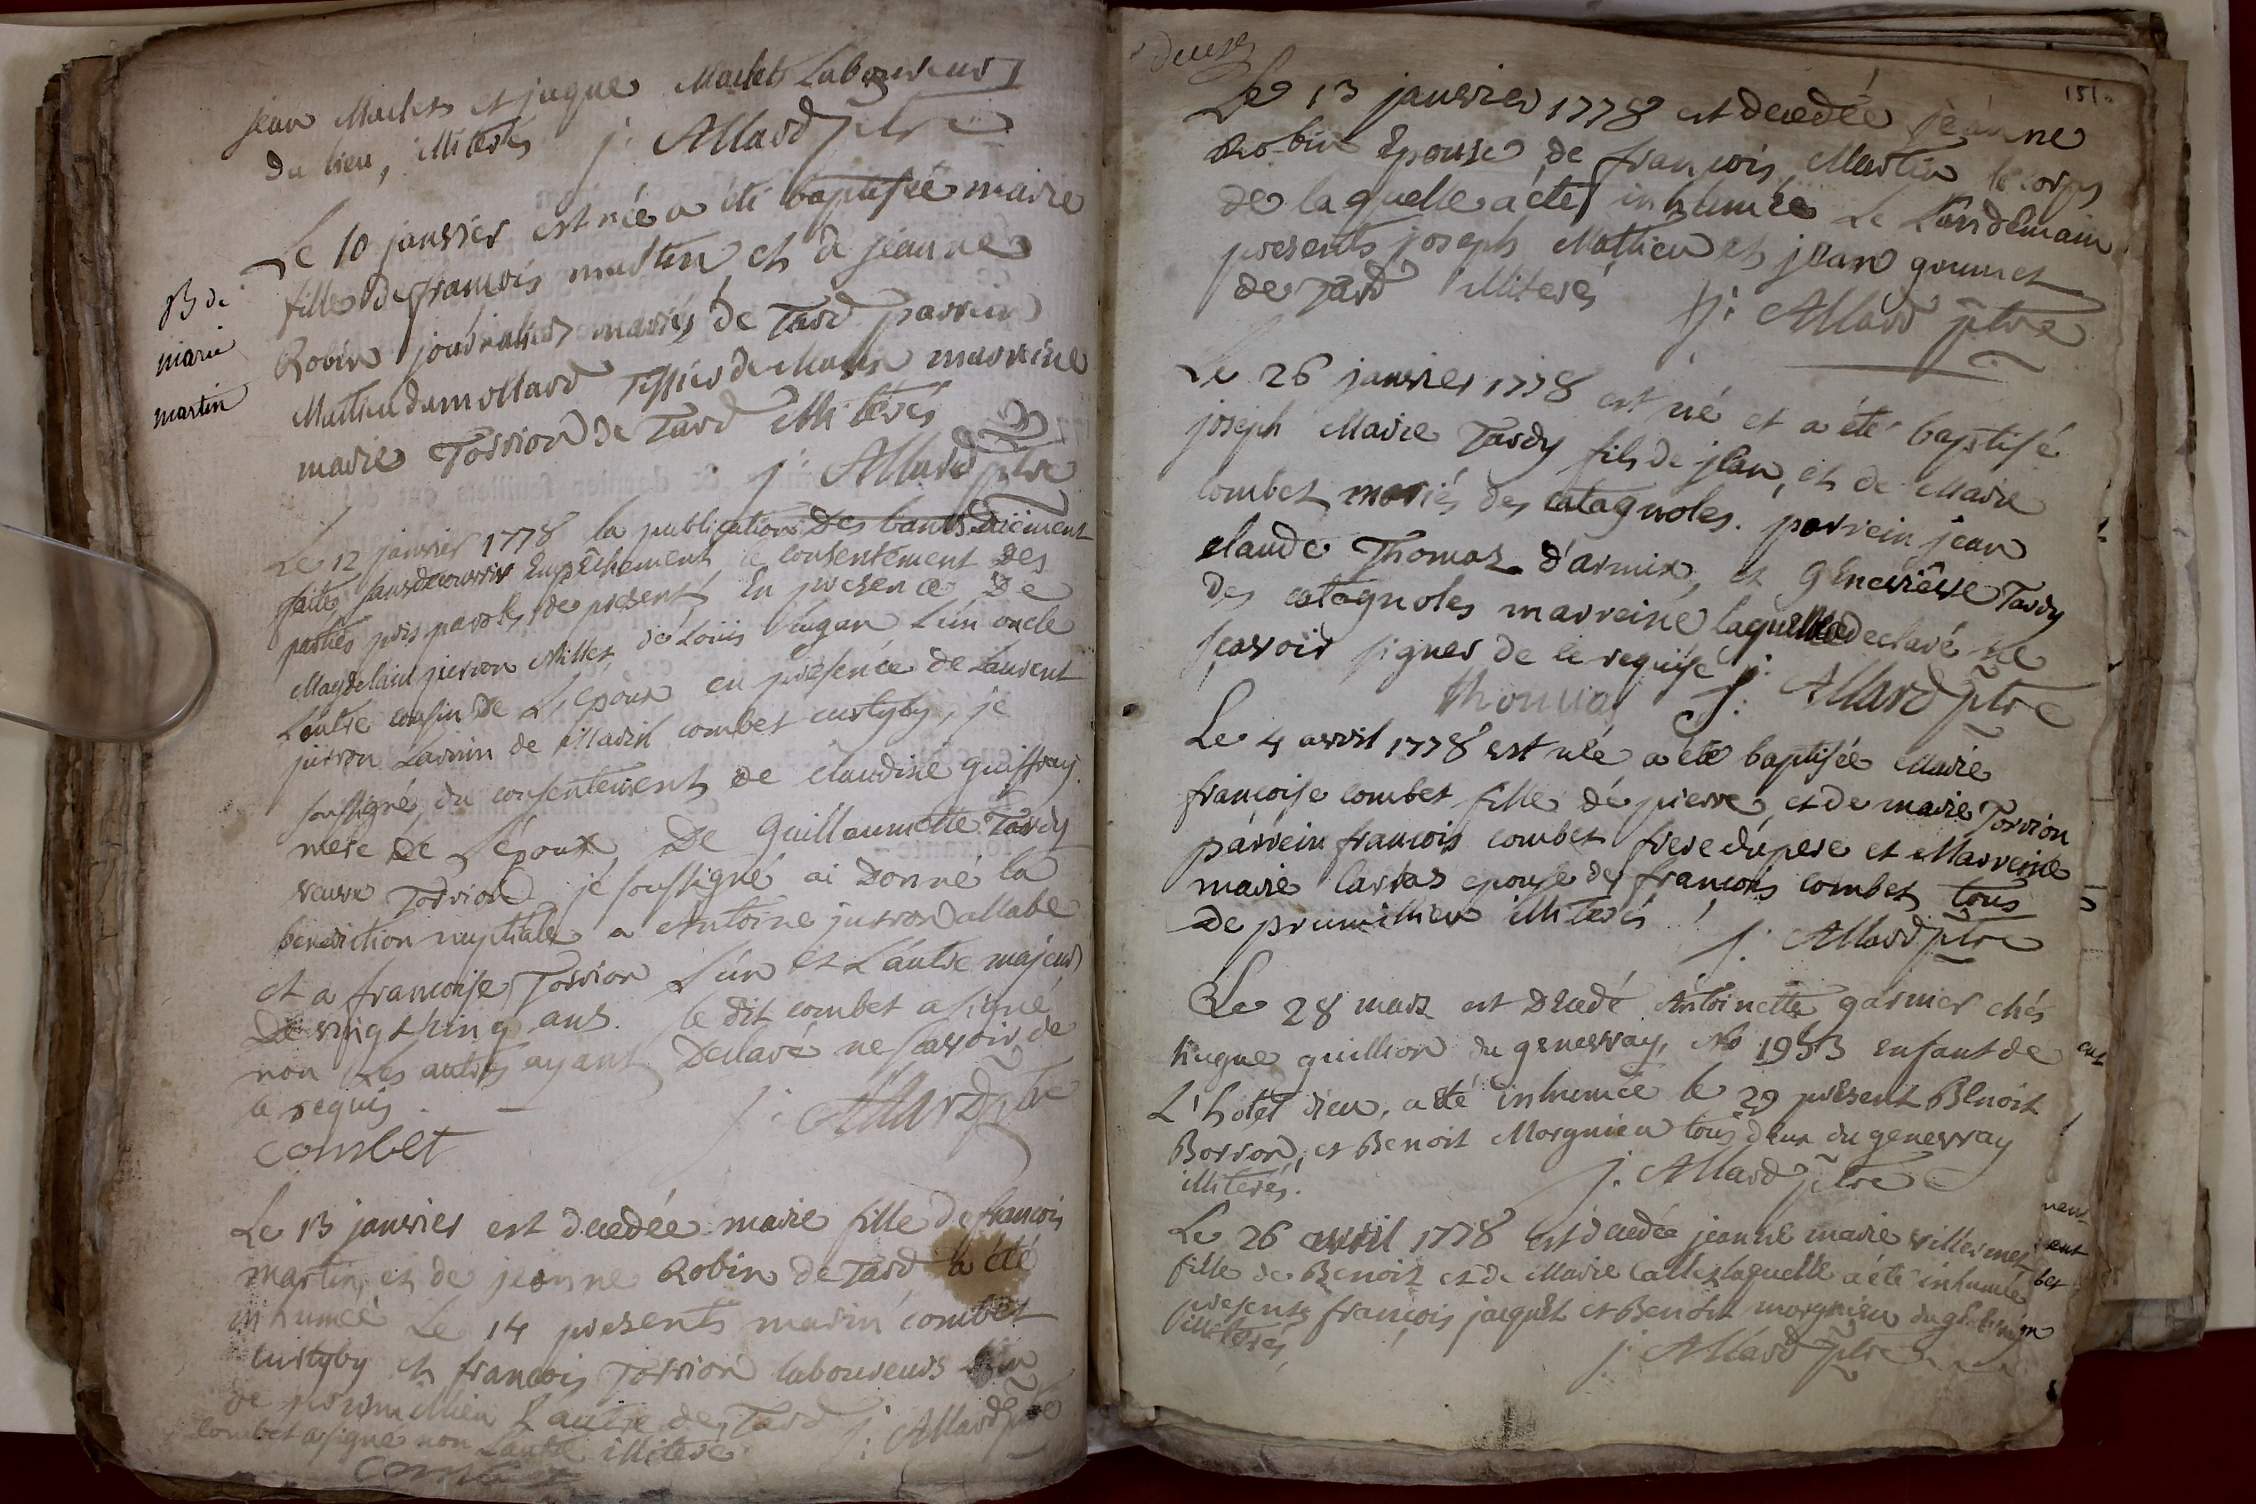 jean Maclet et jaque Maclet Laboureur
du lieu, illiterés j: Allard ptre
Le 10 janvier est née a été baptisée marie
fille de françois martin et de jeanne
Robin journaliers mariés de Tard parrein
Mathieu dumollard Tissier de marreine
marie Torrion de Tard illiterés
j: Allard ptre
B de
marie
martin
Le 12 janvier 1778 la publication des bants duement
faite, sans decouvrir Empêchement, le consentement Des
parties pris paroles de present, En presence De
Magdelain jurron Millet, de Louis L'un oncle
L'autre cousin de L'Epoux en présence de Laurent
jurron Marin combet custyby, je
soussigné, du consentement de claudine guiffray
mere De L'époux, De Guillaumette Tardy
veuve Torrion je soussigné ai Donné la
benediction nuptiale a Antoine jurron
et a françoise Torrion L'un et L'autre majeurs
De vingt cinq ans. le dit combet a signé
non Les autres ayant Declaré ne sçavoir de
ce requis.
combet j: Allard ptre
Le 13 janvier est decedée marie fille de françois
martin, et de jeanne Robin de Tard a été
inhumée Le 14 presents marin combet
custyby et françois Torrion laboureurs L'un
de prumillieu L'autre de Tard j: Allard ptre
combet a signé non L'autre illiteré
combet
deux
151
Le 13 janvier 1778 est decedée jeanne
Robin Epouse de françois Martin le corps
de laquelle a été inhumée Le Landemain
presents joseph Mathieu et jean gounet
de Tard illiterés j: Allard ptre
Le 26 janvier 1778 est né et a été baptisé
joseph Marie Tardy fils de jean, et de Marie
combet mariés des catagnoles. parrein jean
claude Thomas d'armix, et Genevieve Tardy
des catagnoles marreine laquelle a declaré ne
sçavoir signer de ce requise j: Allard ptre
Thomas
Le 4 avril 1778 est née a été baptisée Marie
françoise combet fille de pierre, et de marie Torrion
parrein françois combet frere du pere et Marreine
marie epouse de françois combet tous
De prumillieu illiterés j: Allard ptre
Le 28 mars est Decedé Antoinette garnier chés
hugue guillion du genevray, No 1953 enfant de
L'hotel dieu, a été inhumée le 29 présent Benoit
Borron, et Benoit Morgnieu tous deux du genevray
illiterés. j: Allard ptre
Le 26 avril 1778 est decedée jeanne marie villermet
fille de Benoit et de Marie Callet laquelle a été inhumée
presents françois jaquet et Benoit morgnieu du genevray
illiterés j: Allard ptre